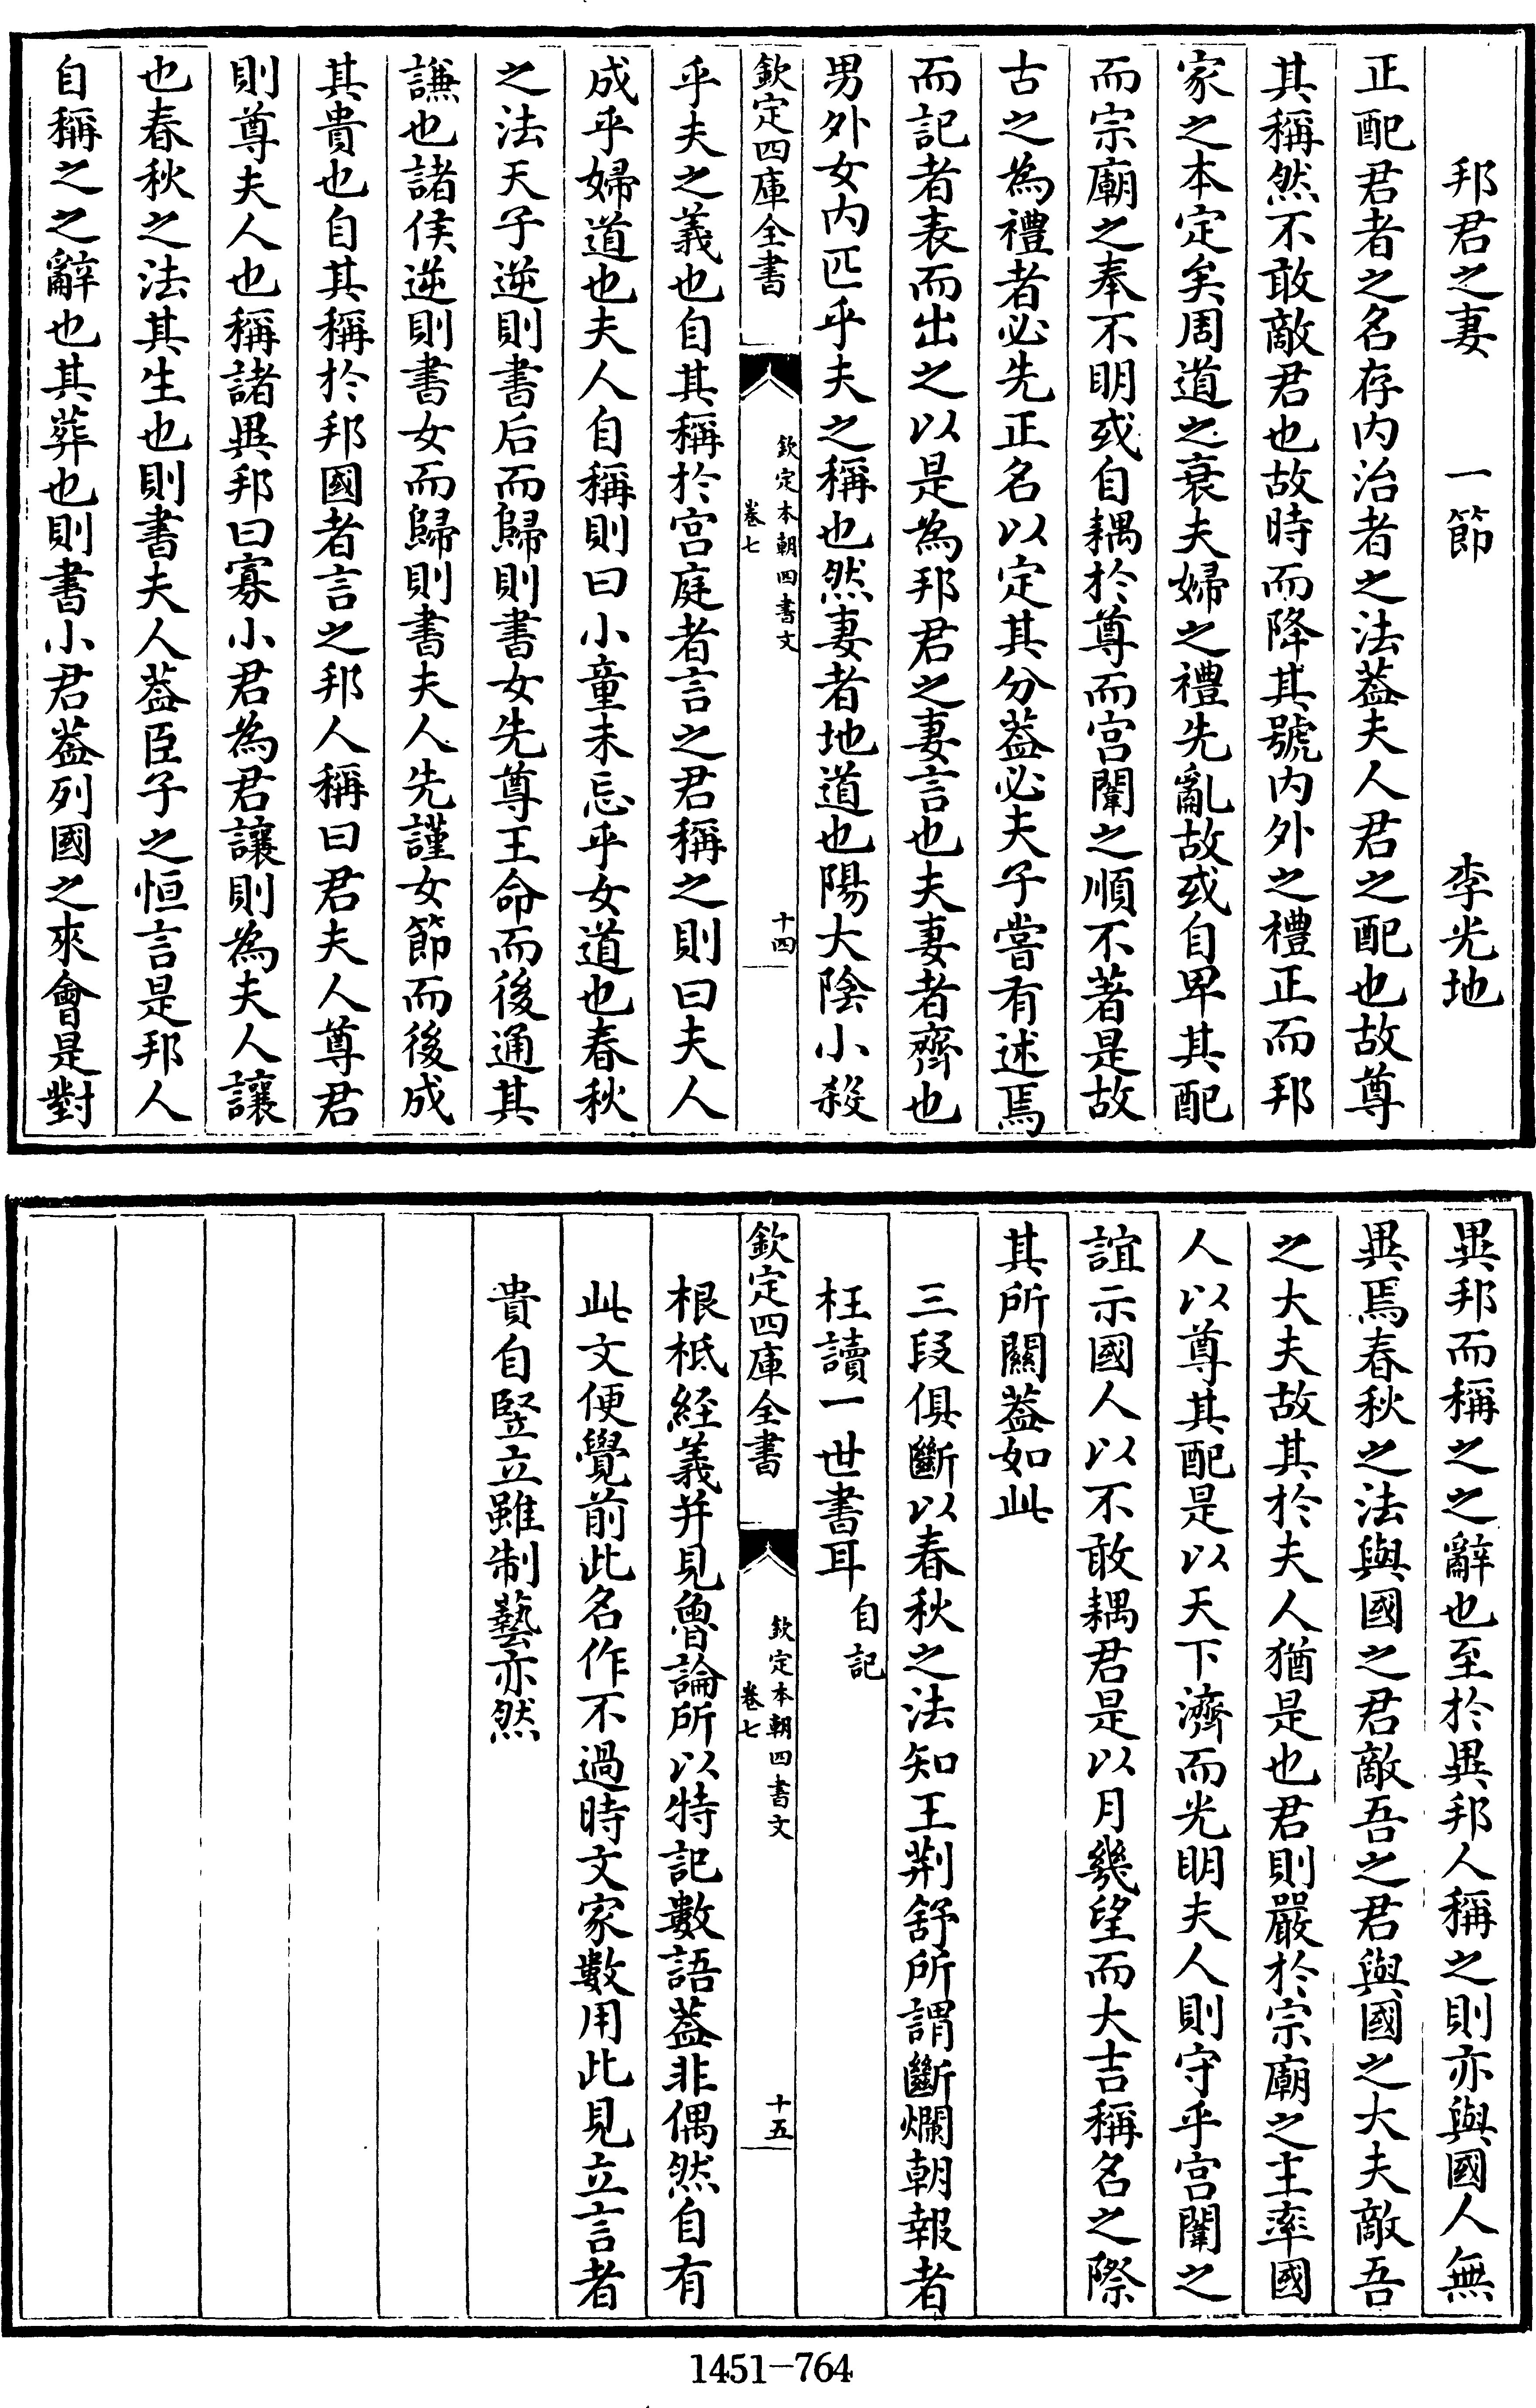 邦君之妻　一節　李光地
正配君者之名存内治者之法葢夫人君之配也故尊
其稱然不敢敵君也故時而降其號内外之禮正而邦
家之本定矣周道之衰夫婦之禮先亂故或自卑其配
而宗廟之奉不明或自耦於尊而宫闈之順不著是故
古之為禮者必先正名以定其分葢必夫子嘗有述焉
而記者表而出之以是為邦君之妻言也夫妻者齊也
男外女内匹乎夫之稱也然妻者地道也陽大陰小殺
欽定四庫全書
欽定本朝四書文
卷七
十四
乎夫之義也自其稱於宫庭者言之君稱之則曰夫人
成乎婦道也夫人自稱則曰小童未忘乎女道也春秋
之法天子逆則書后而歸則書女先尊王命而後通其
謙也諸侯逆則書女而歸則書夫人先謹女節而後成
其貴也自其稱於邦國者言之邦人稱曰君夫人尊君
則尊夫人也稱諸異邦曰寡小君為君讓則為夫人讓
也春秋之法其生也則書夫人葢臣子之恒言是邦人
自稱之之辭也其葬也則書小君葢列國之來會是對
異邦而稱之之辭也至於異邦人稱之則亦與國人無
異焉春秋之法與國之君敵吾之君與國之大夫敵吾
之大夫故其於夫人猶是也君則嚴於宗廟之主率國
人以尊其配是以天下濟而光明夫人則守乎宫闈之
誼示國人以不敢耦君是以月幾望而大吉稱名之際
其所關葢如此
三段俱斷以春秋之法知王荆舒所謂斷爛朝報者
枉讀一世書耳 自記
欽定四庫全書
欽定本朝四書文
卷七
十五
根柢經義并見魯論所以特記數語葢非偶然自有
此文便覺前此名作不過時文家數用此見立言者
貴自竪立雖制藝亦然
1451-764